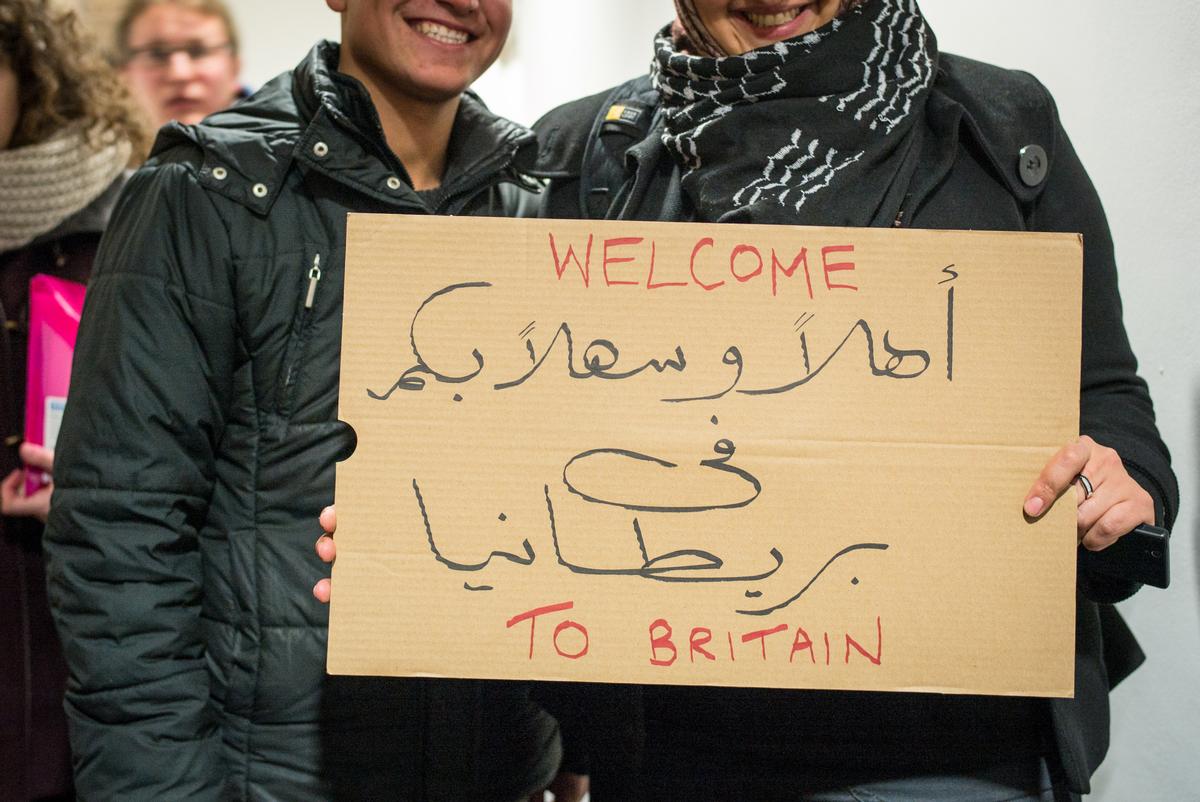 WELCOME
أهلاً و سهلاً بكم
فى
بريطانيا
TO BRITAIN